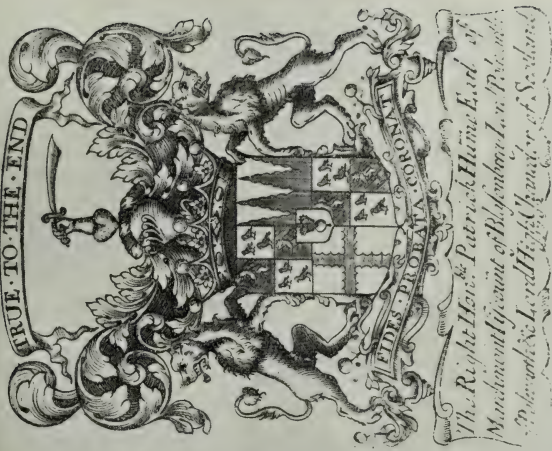 TRUE · TO · THE · END
FIDES · PROBATA · CORONAT
The Right Hon.ble Patrick Hume Earl of
Marchmont Viscount of Blasonberry Lord Polwarth
of Polwarth &c Lord High Chancellor of Scotland